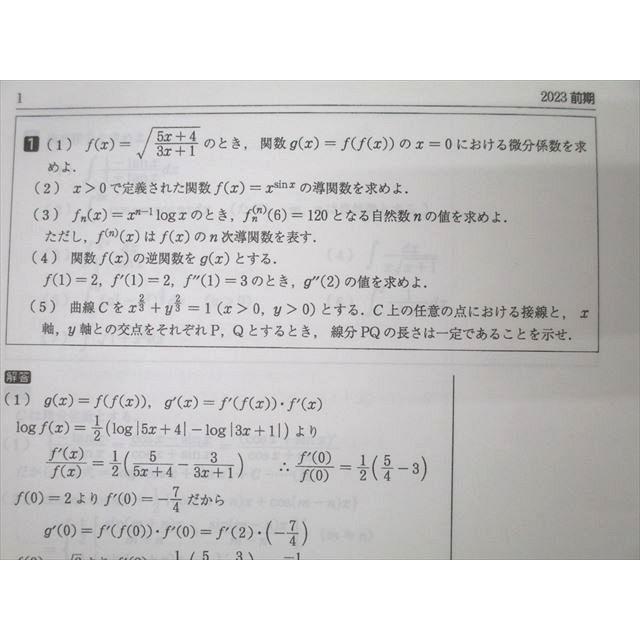 1 2023 前期
1 (1) f(x)=√((5x+4)/(3x+1)) のとき，関数 g(x)=f(f(x)) の x=0 における微分係数を求
めよ．
(2) x>0 で定義された関数 f(x)=x^{sin x} の導関数を求めよ．
(3) f_n(x)=x^{n-1} log x のとき，f_n^{(n)}(6)=120 となる自然数 n の値を求めよ．
ただし，f^{(n)}(x) は f(x) の n 次導関数を表す．
(4) 関数 f(x) の逆関数を g(x) とする．
f(1)=2，f′(1)=2，f″(1)=3 のとき，g″(2) の値を求めよ．
(5) 曲線 C を x^{2/3}+y^{2/3}=1 (x>0，y>0) とする．C 上の任意の点における接線と，x
軸，y 軸との交点をそれぞれ P，Q とするとき，線分 PQ の長さは一定であることを示せ．
解答
(1) g(x)=f(f(x))，g′(x)=f′(f(x))・f′(x)
log f(x)=1/2(log|5x+4|−log|3x+1|) より
f′(x)/f(x)=1/2(5/(5x+4)−3/(3x+1)) ∴ f′(0)/f(0)=1/2(5/4−3)
f(0)=2 より f′(0)=−7/4 だから
g′(0)=f′(f(0))・f′(0)=f′(2)・(−7/4)